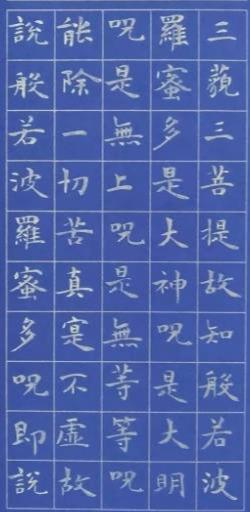 三藐三菩提故知般若波
羅蜜多是大神呪是大明
呪是無上呪是無等等呪
能除一切苦真寔不虛故
說般若波羅蜜多呪即說